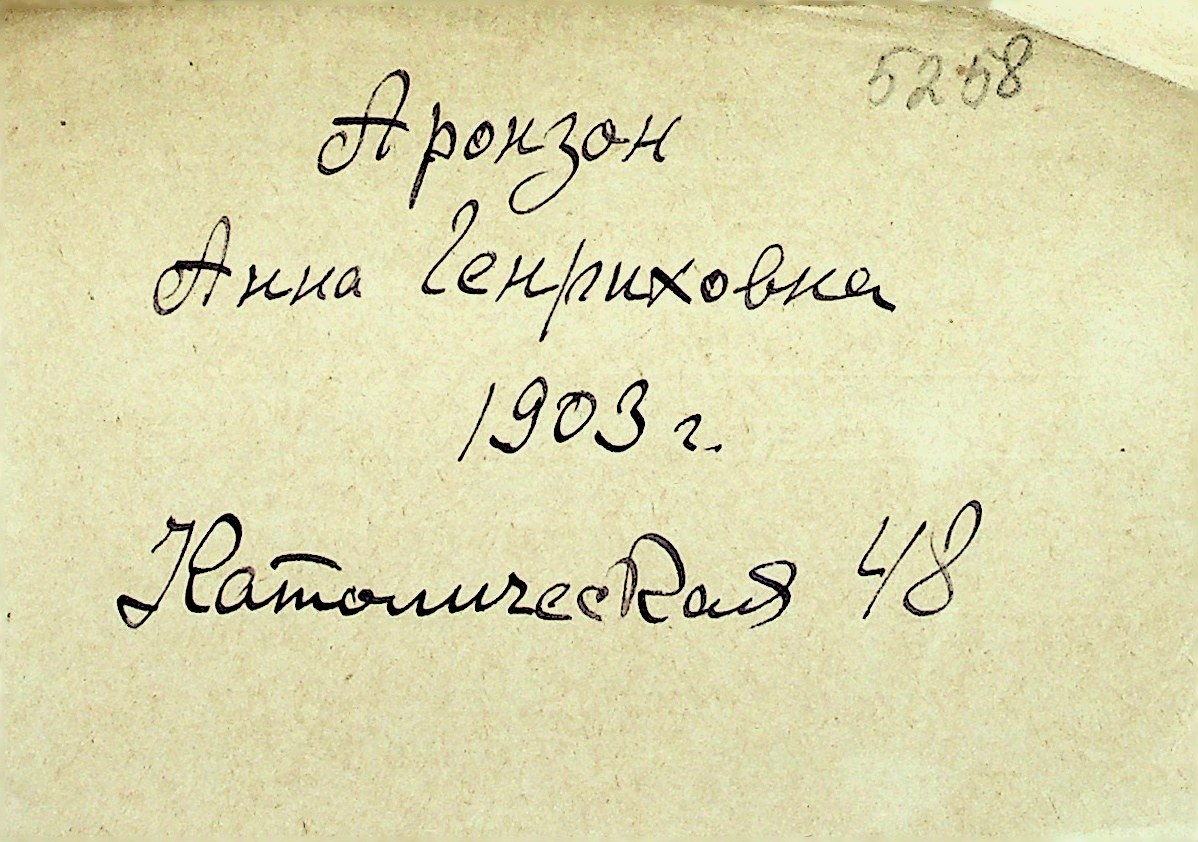 5258
Аронзон
Анна Генриховна
1903 г.
Католическая 48